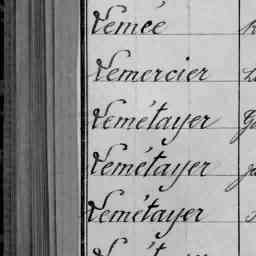 Lemée
Lemercier
Lemétayer
Lemétayer
Lemétayer